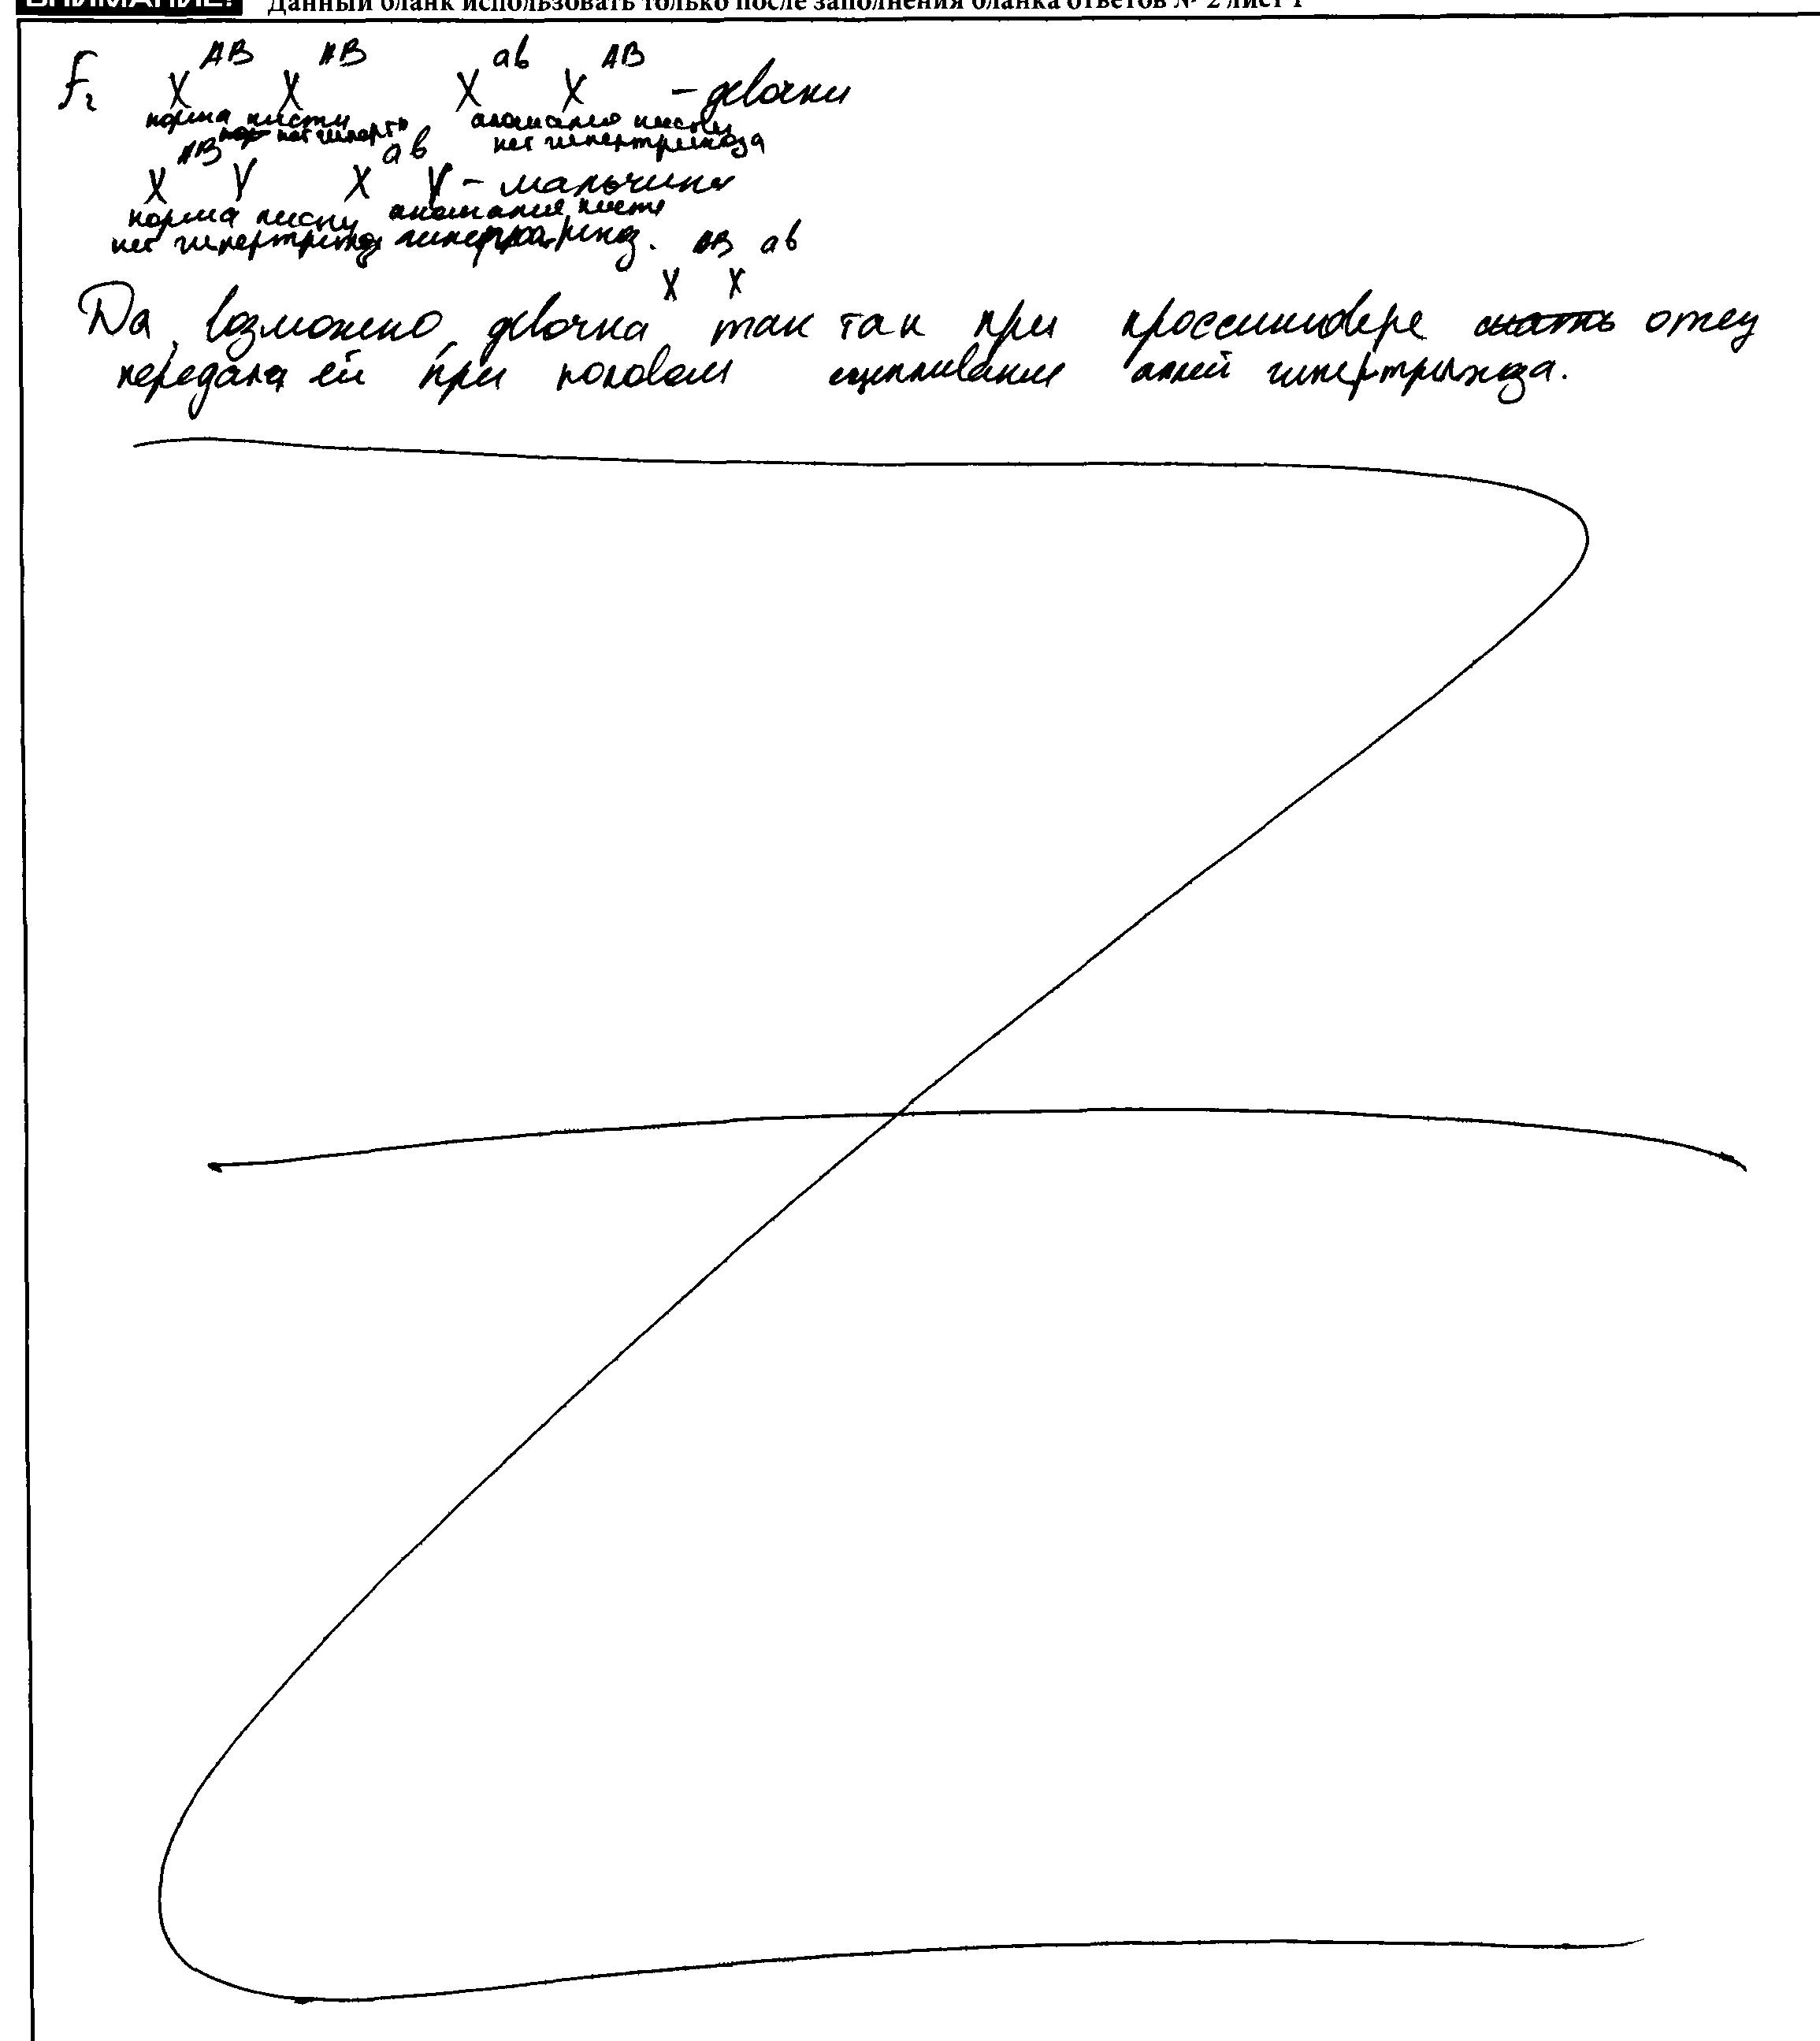 ВНИМАНИЕ! Данный бланк использовать только после заполнения бланка ответов № 2 лист 1
F₂ X^AB X^AB X^ab X^AB – девочки
норма кисти аномалия кисти
нет гиперт нет гипертрихоза
X^AB Y X^ab Y – мальчики
норма кисти аномалия кисти
нет гипертрихоз гипертрихоз.
X^AB X^ab
Да, возможно, девочка так так при кроссинговере мать отец
передала ей при половом сцепливании аллей гипертрихоза.